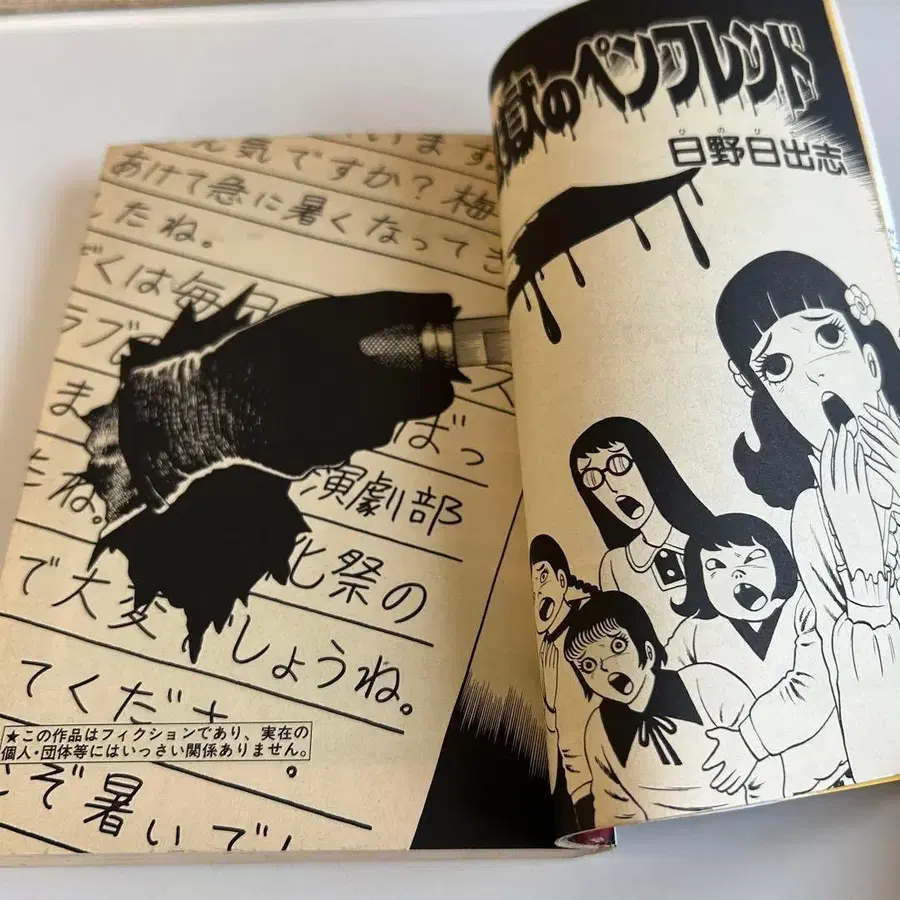 獄のペンフレンド
ひのひ
日野日出志
います。
気ですか?梅
あけて急に暑くなってき
したね。
くは毎日
ラブで
ま
ばっ
演劇部
ね。
化祭の
で大変でしょうね。
てくださ
★この作品はフィクションであり、実在の
個人・団体等にはいっさい関係ありません。
ぞ暑いで